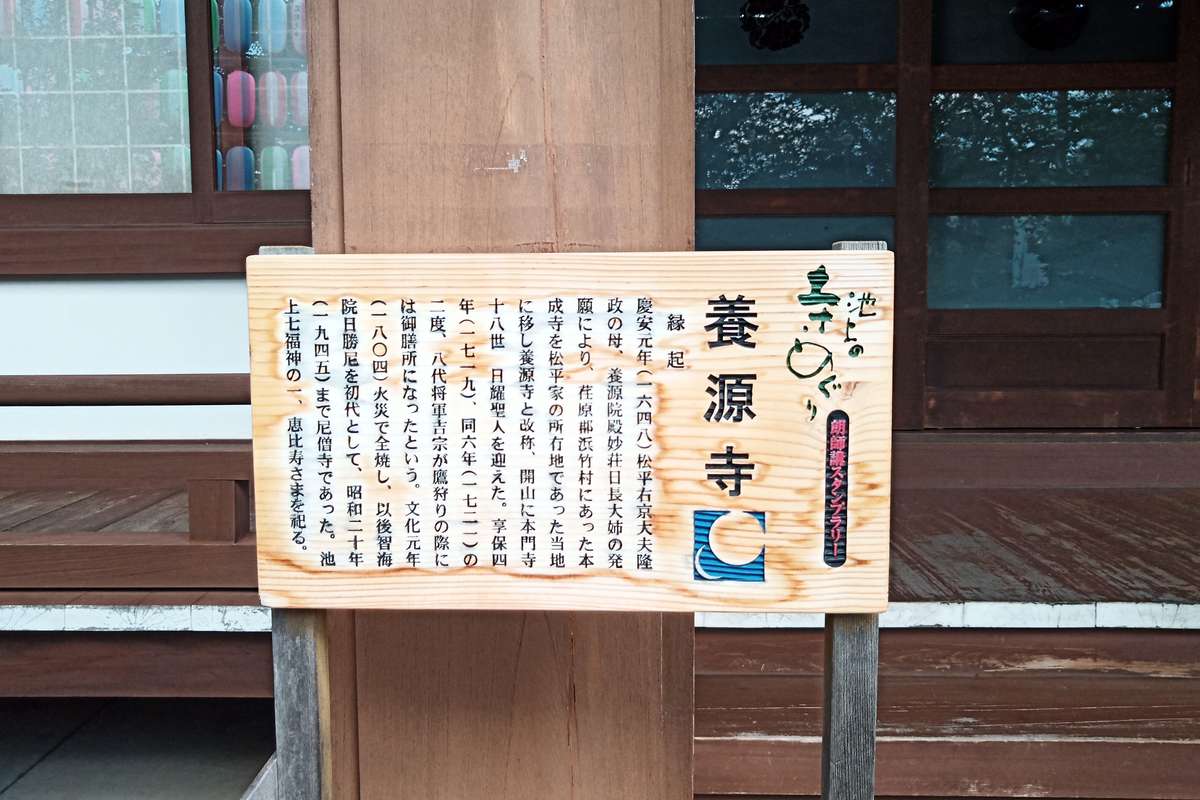 池上の
寺めぐり
朗師講スタンプラリー
養源寺
縁起
慶安元年(一六四八)松平右京大夫隆
政の母、養源院殿妙荘日長大姉の発
願により、荏原郡浜竹村にあった本
成寺を松平家の所有地であった当地
に移し養源寺と改称、開山に本門寺
十八世 日耀聖人を迎えた。享保四
年(一七一九)、同六年(一七二一)の
二度、八代将軍吉宗が鷹狩りの際に
は御膳所になったという。文化元年
(一八〇四)火災で全焼し、以後智海
院日勝尼を初代として、昭和二十年
(一九四五)まで尼僧寺であった。池
上七福神の一、恵比寿さまを祀る。